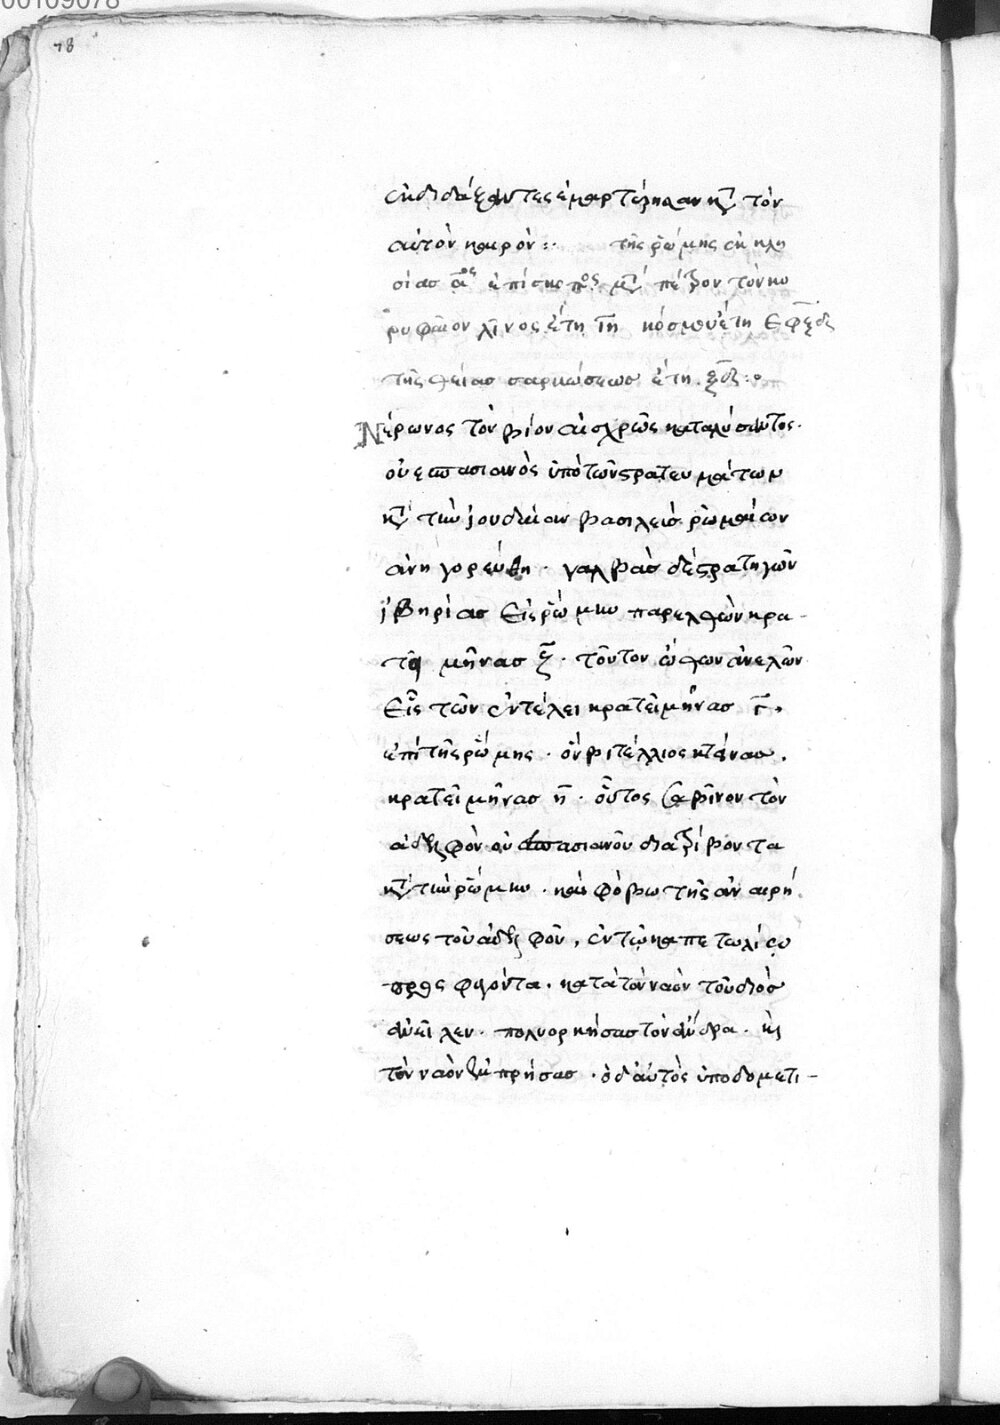 00109078
78
ἐκδιδάξαντες ἐμαρτύρησαν κατὰ τὸν
αὐτὸν καιρὸν :· τῆς ῥώμης ἐκκλη
σίας αος ἐπίσκοπος μετὰ πέτρον τὸν κο
ρυφαῖον λῖνος ἔτη ιη κόσμου ἔτη
τῆς θείας σαρκώσεως ἔτη ξζ :·
Νέρωνος τὸν βίον αἰσχρῶς καταλύσαντος.
οὐεσπασιανὸς ὑπὸ τῶν στρατευμάτων
κατὰ τὴν ἰουδαίαν βασιλεὺς ῥωμαίων
ἀνηγορεύθη · γαλβὰς δὲ στρατηγῶν
ἰβηρίας εἰς ῥώμην παρελθὼν κρα-
τεῖ μῆνας ζ · τοῦτον ὤθων ἀνελὼν
εἷς τῶν ἐντέλει κρατεῖ μῆνας γ.
ἐπὶ τῆς ῥώμης · ὃν βιτέλλιος κτείνας.
κρατεῖ μῆνας η · οὗτος σαβῖνον τὸν
ἀδελφὸν οὐεσπασιανοῦ διατρίβοντα
κατὰ τὴν ῥώμην · καὶ φόβω τῆς ἀναιρή
σεως τοῦ ἀδελφοῦ, ἐν τῷ καπετωλίῳ
προσφυγόντα. κατὰ τὸν ναὸν τοῦ διὸς
ἀνεῖλεν · πολιορκήσας τὸν ἄνδρα · καὶ
τὸν ναὸν ἐμπρήσας · ὁ δ αὐτὸς ὑπο δομετι-